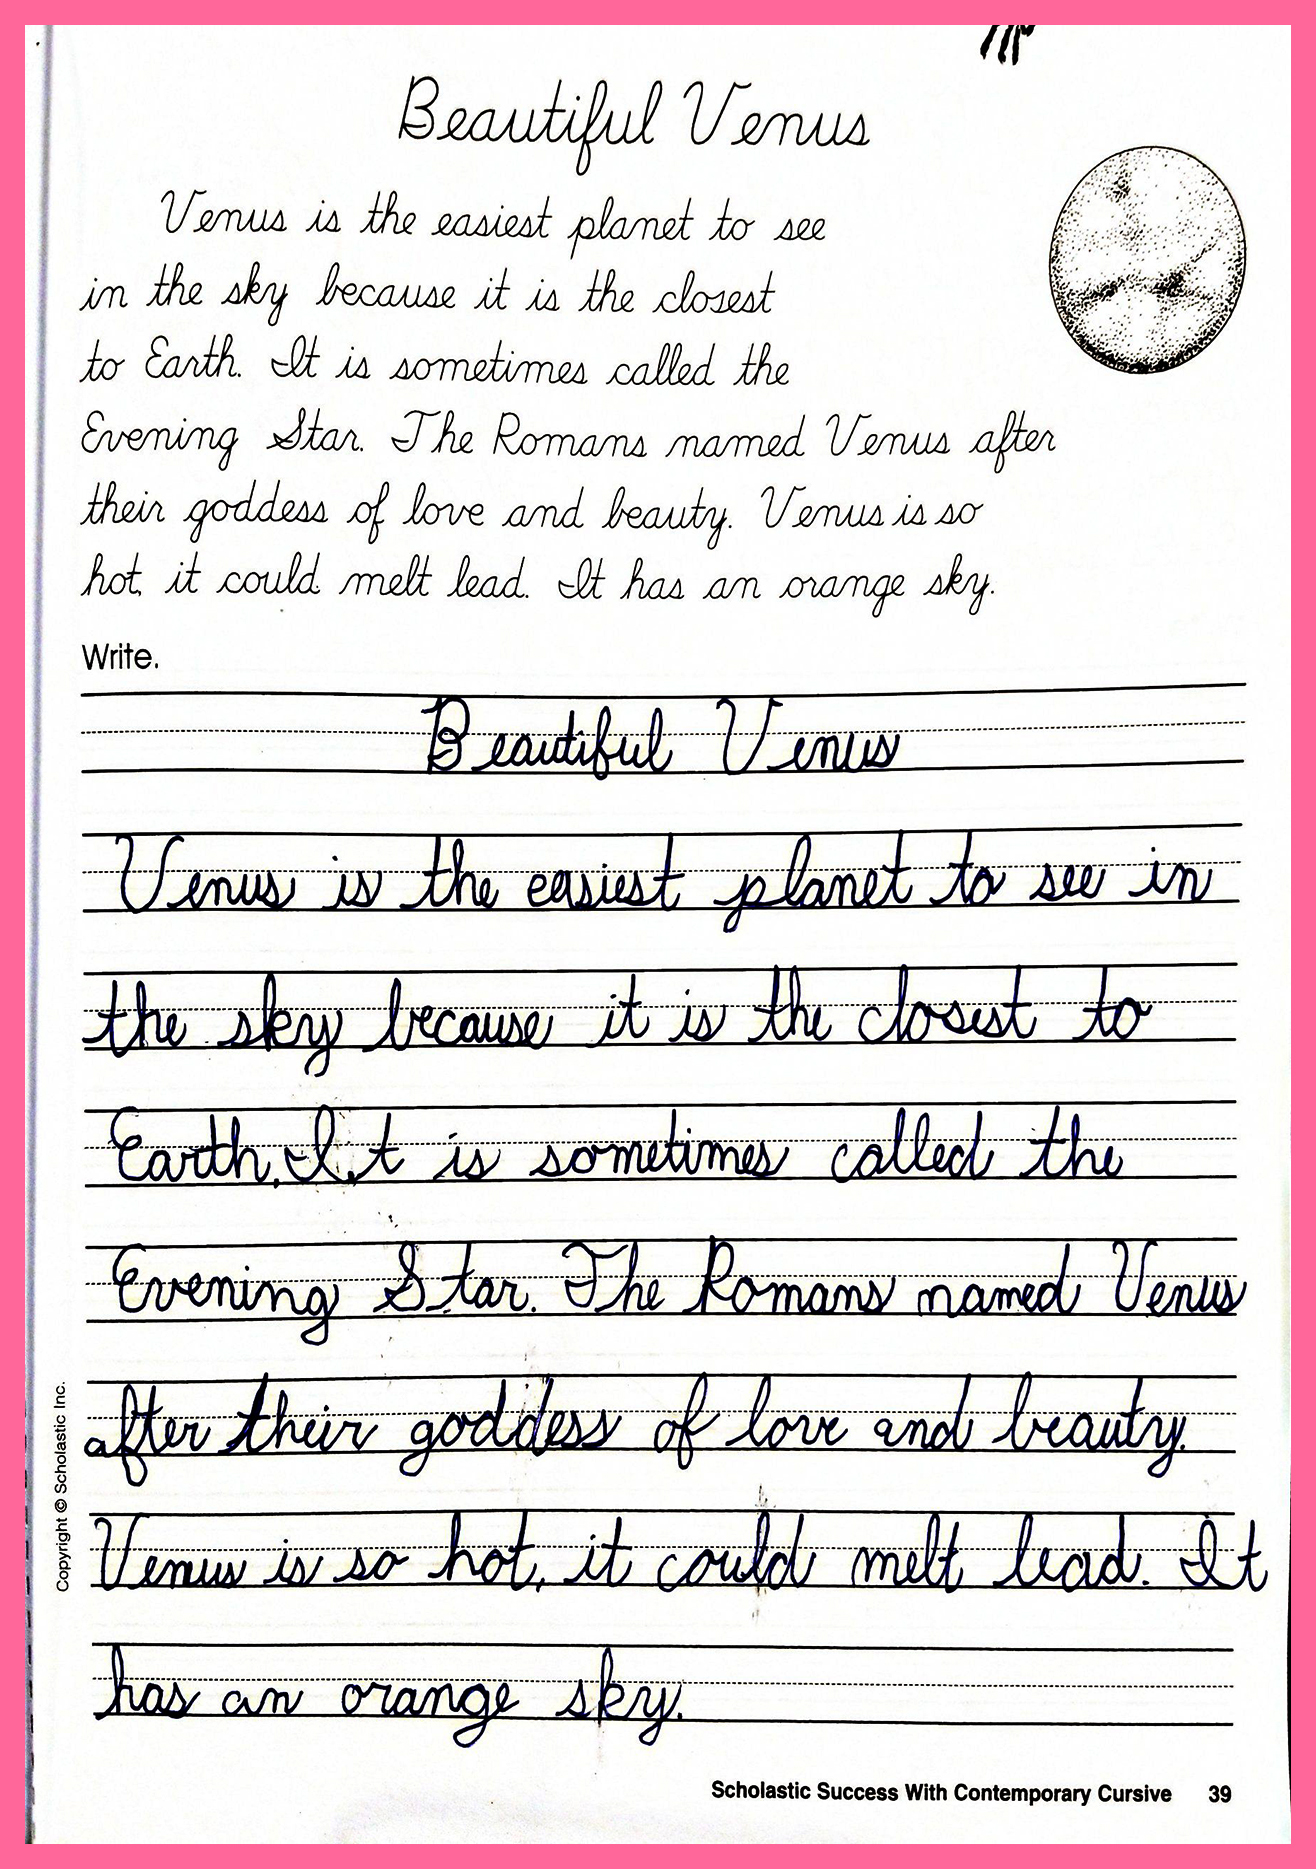 Beautiful Venus
Venus is the easiest planet to see
in the sky because it is the closest
to Earth. It is sometimes called the
Evening Star. The Romans named Venus after
their goddess of love and beauty. Venus is so
hot, it could melt lead. It has an orange sky.
Write.
Beautiful Venus
Venus is the easiest planet to see in
the sky because it is the closest to
Earth. It is sometimes called the
Evening Star. The Romans named Venus
after their goddess of love and beauty.
Venus is so hot, it could melt lead. It
has an orange sky.
Copyright © Scholastic Inc.
Scholastic Success With Contemporary Cursive 39